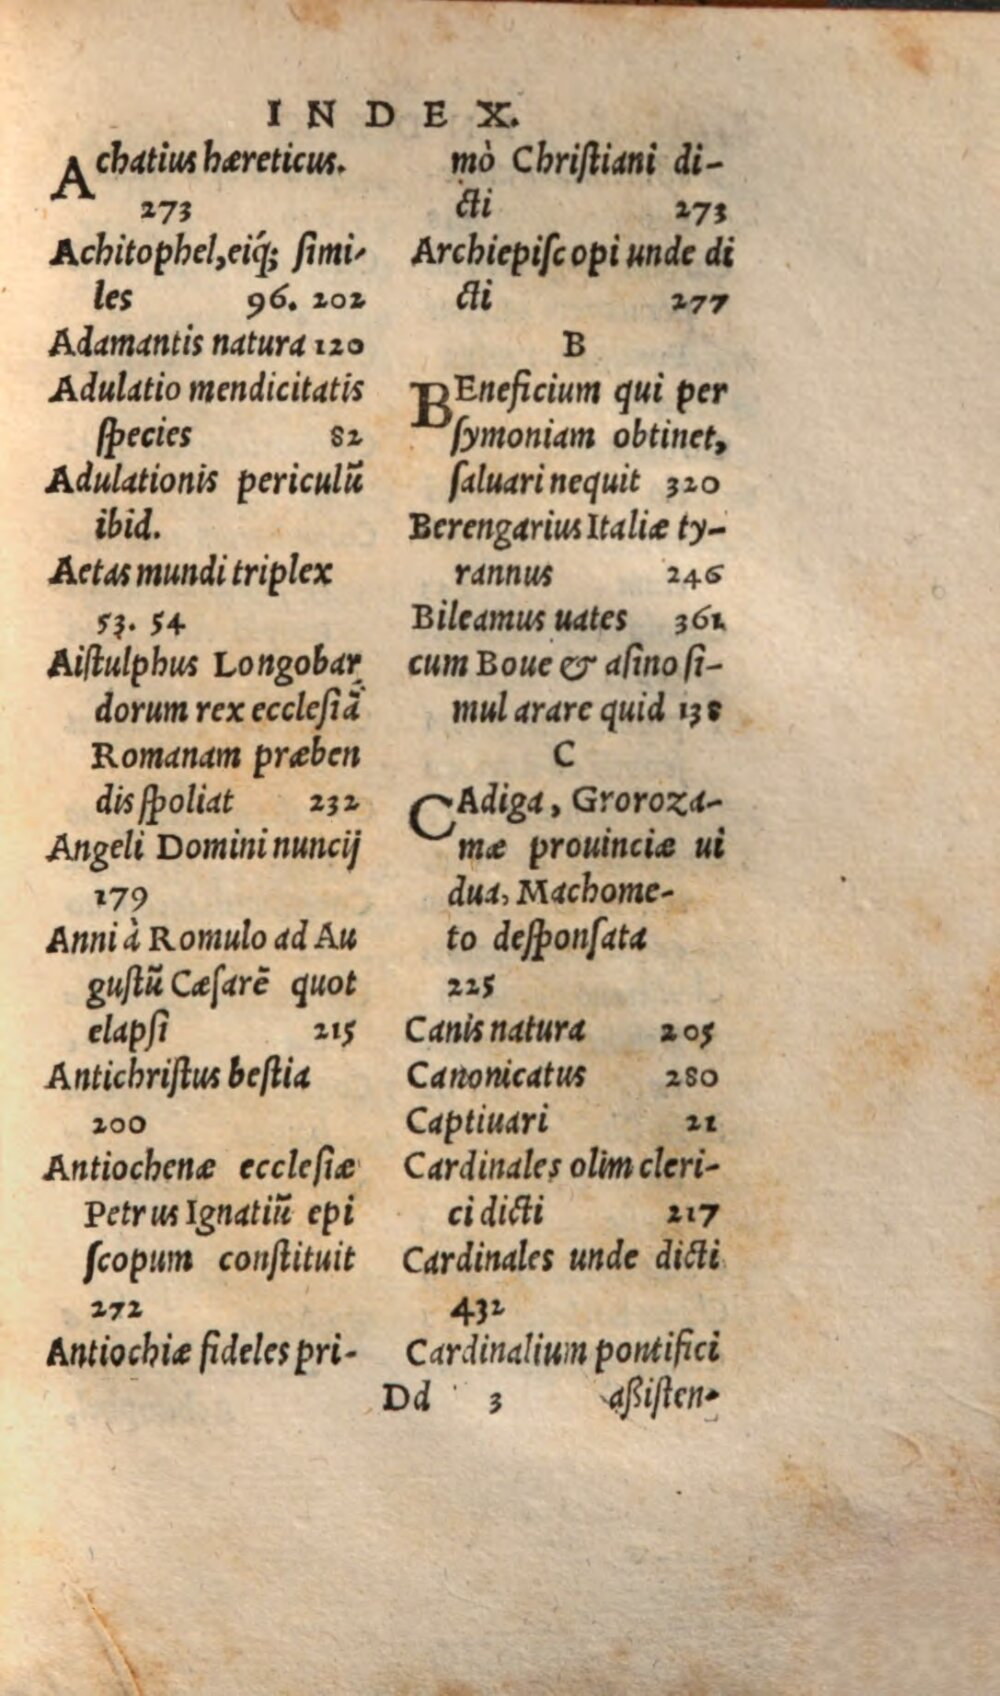 INDEX.
Achatius hæreticus.
273
Achitophel, eiq́; ſimi-
les 96. 202
Adamantis natura 120
Adulatio mendicitatis
ſpecies 82
Adulationis periculũ
ibid.
Aetas mundi triplex
53. 54
Aiſtulphus Longobar
dorum rex eccleſiã
Romanam præben
dis ſpoliat 232
Angeli Domini nuncij
179
Anni à Romulo ad Au
guſtũ Cæſarẽ quot
elapſi 215
Antichriſtus beſtia
200
Antiochenæ eccleſiæ
Petrus Ignatiũ epi
ſcopum conſtituit
272
Antiochiæ fideles pri-
mò Chriſtiani di-
cti 273
Archiepiſcopi unde di
cti 277
B
BEneficium qui per
ſymoniam obtinet,
ſaluari nequit 320
Berengarius Italiæ ty-
rannus 246
Bileamus uates 361
cum Boue & aſino ſi-
mul arare quid 138
C
CAdiga, Groroza-
mæ prouinciæ ui
dua, Machome-
to deſponſata
225
Canis natura 205
Canonicatus 280
Captiuari 21
Cardinales olim cleri-
ci dicti 217
Cardinales unde dicti
432
Cardinalium pontifici
Dd 3 aßiſten-